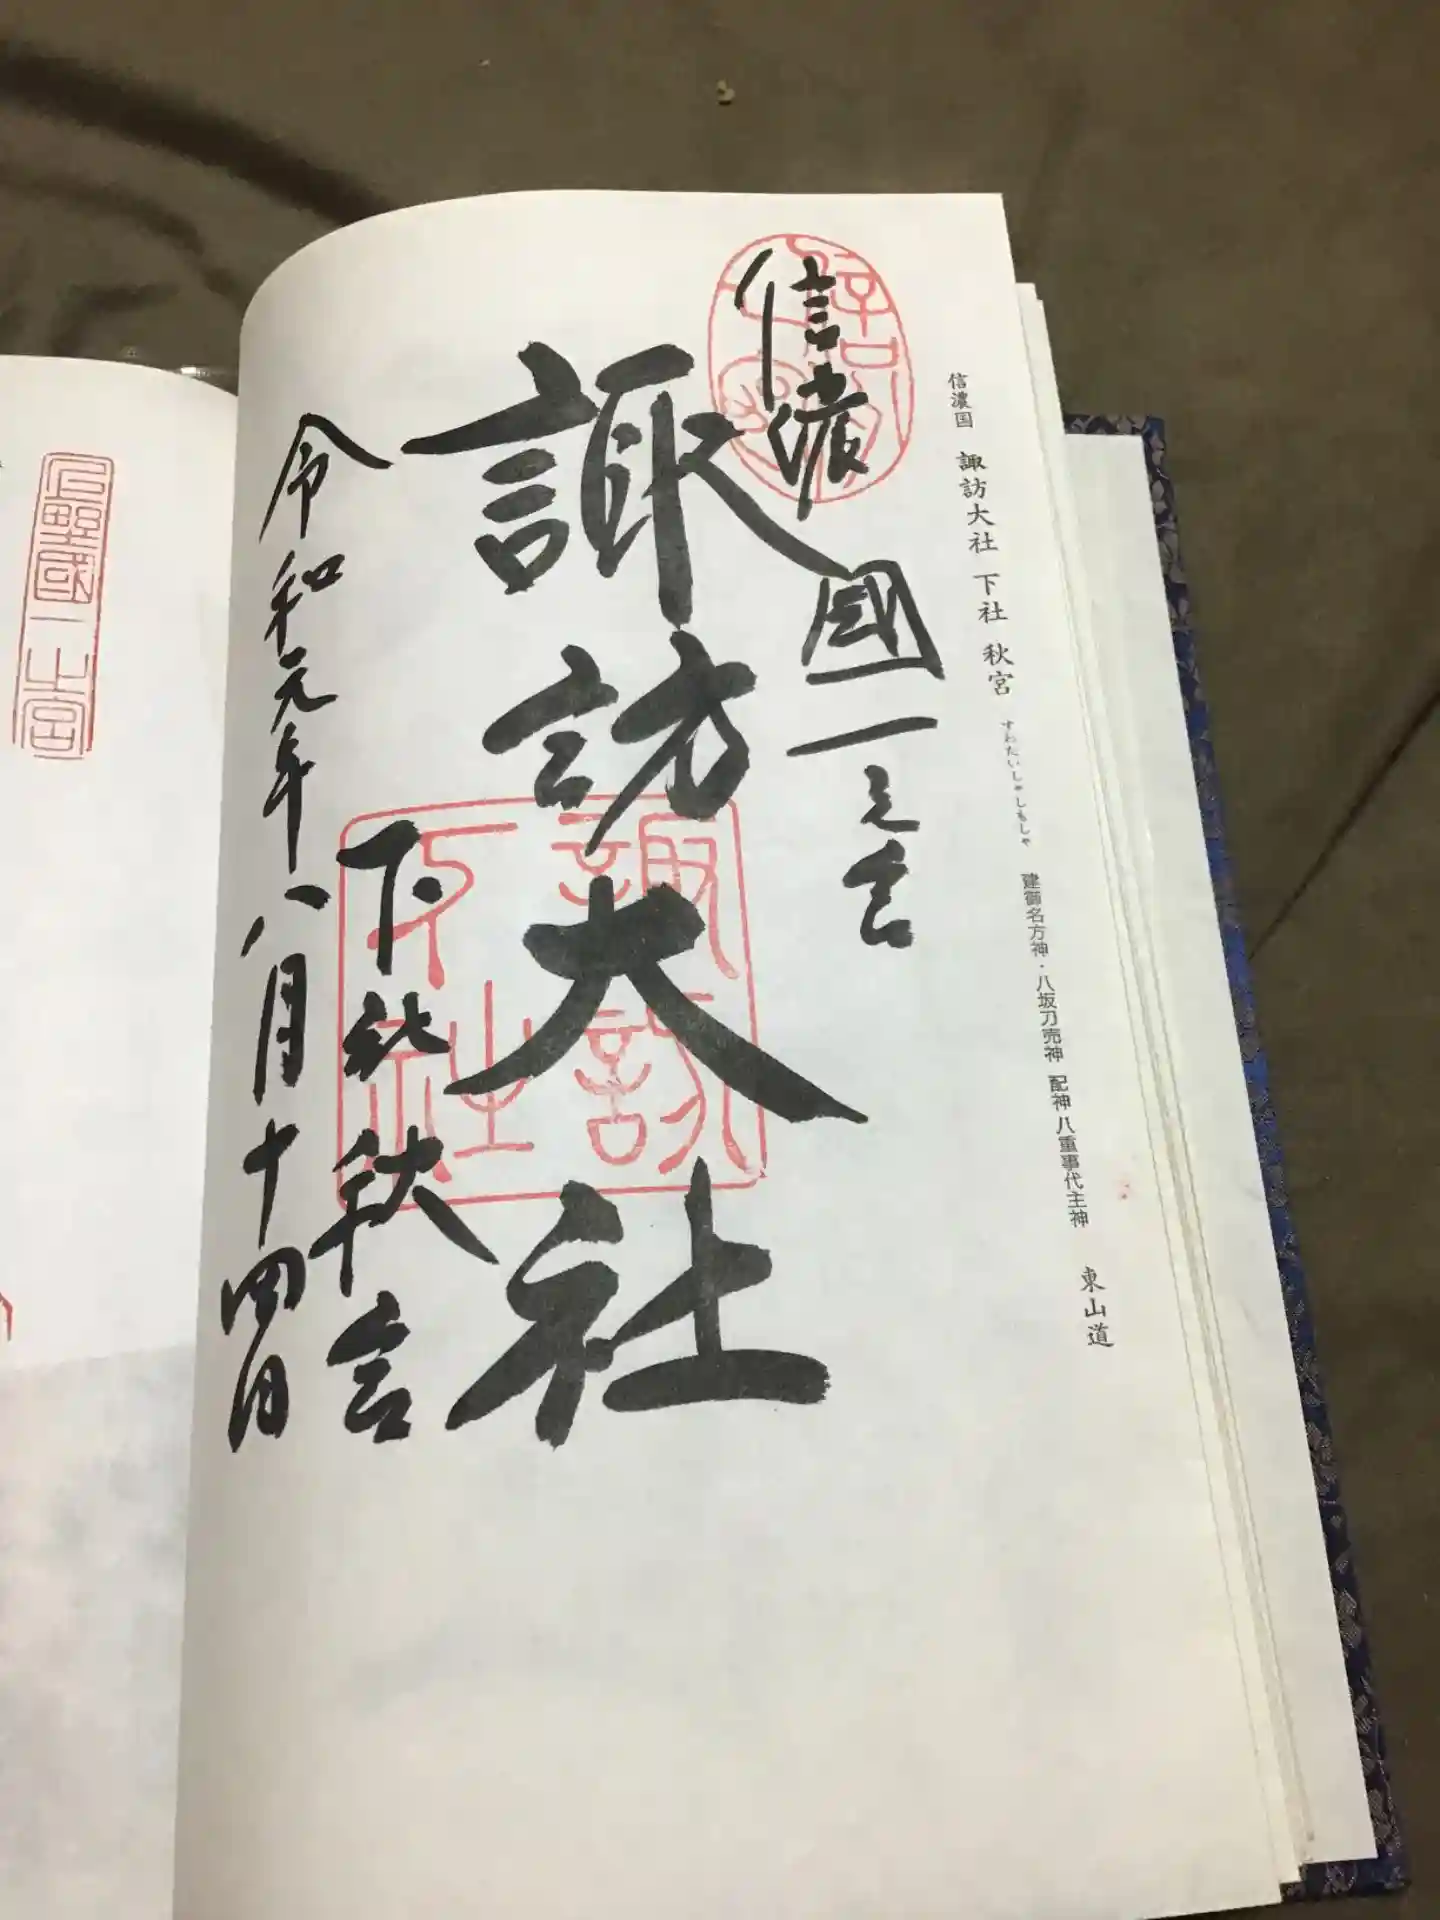 信濃国 諏訪大社 下社 秋宮 すわたいしゃしもしゃ 建御名方神・八坂刀売神 配神 八重事代主神 東山道
信濃
國一之宮
諏訪大社
下社秋宮
令和元年八月十四日
諏訪
下社
信濃國一之宮